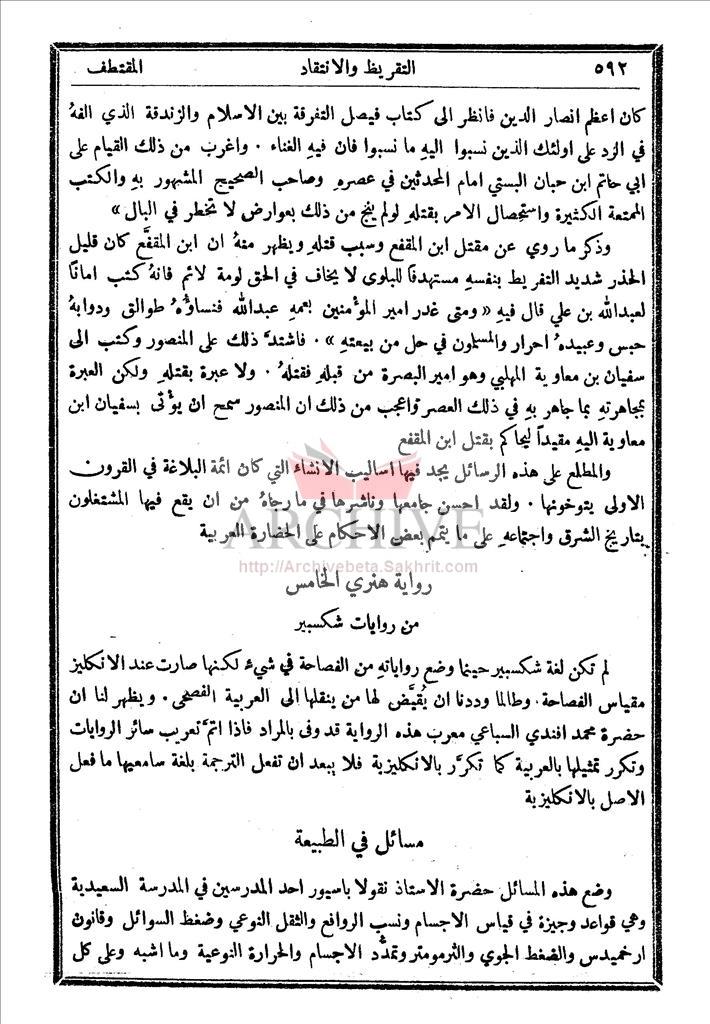 ٥٩٢ التقريظ والانتقاد المقتطف
كان اعظم انصار الدين فانظر الى كتاب فيصل التفرقة بين الاسلام والزندقة الذي الفهُ
في الرد على اولئك الذين نسبوا اليهِ ما نسبوا فان فيهِ الغناء . واغرب من ذلك القيام على
ابي حاتم ابن حبان البستي امام المحدثين في عصرهِ وصاحب الصحيح المشهور بهِ والكتب
الممتعة الكثيرة واستحصال الامر بقتلهِ لولم ينج من ذلك بعوارض لا تخطر في البال »
وذكر ما روي عن مقتل ابن المقفع وسبب قتلهِ ويظهر منهُ ان ابن المقفَّع كان قليل
الحذر شديد التفريط بنفسهِ مستهدفاً للبلوى لا يخاف في الحق لومة لائم فانهُ كتب اماناً
لعبدالله بن علي قال فيهِ « ومتى غدر امير المؤمنين بعمهِ عبدالله فنساؤُهُ طوالق ودوابهُ
حبس وعبيدهُ احرار والمسلمون في حل من بيعتهِ » . فاشتدَّ ذلك على المنصور وكتب الى
سفيان بن معاوية المهلبي وهو امير البصرة من قبلهِ فقتلهُ . ولا عبرة بقتلهِ ولكن العبرة
بمجاهرتهِ بما جاهر بهِ في ذلك العصر واعجب من ذلك ان المنصور سمح ان يؤتى بسفيان ابن
معاوية اليهِ مقيداً ليحاكم بقتل ابن المقفع
والمطلع على هذه الرسائل يجد فيها اساليب الانشاء التي كان ائمة البلاغة في القرون
الاولى يتوخونها . ولقد احسن جامعها وناشرها في ما رجاهُ من ان يقع فيها المشتغلون
بتاريخ الشرق واجتماعهِ على ما يتمم بعض الاحكام على الحضارة العربية
ARCHIVE
http://Archivebeta.Sakhrit.com
رواية هنري الخامس
من روايات شكسبير
لم تكن لغة شكسبير حينما وضع رواياتهِ من الفصاحة في شيءٍ لكنها صارت عند الانكليز
مقياس الفصاحة . وطالما وددنا ان يُقيَّض لها من ينقلها الى العربية الفصحى . ويظهر لنا ان
حضرة محمد افندي السباعي معرب هذه الرواية قد وفى بالمراد فاذا اتمَّ تعريب سائر الروايات
وتكرر تمثيلها بالعربية كما تكرَّر بالانكليزية فلا يبعد ان تفعل الترجمة بلغة سامعيها ما فعل
الاصل بالانكليزية
مسائل في الطبيعة
وضع هذه المسائل حضرة الاستاذ نقولا باسيور احد المدرسين في المدرسة السعيدية
وهي قواعد وجيزة في قياس الاجسام ونسب الروافع والثقل النوعي وضغط السوائل وقانون
ارخميدس والضغط الجوي والثرمومتر وتمدُّد الاجسام والحرارة النوعية وما اشبه وعلى كل